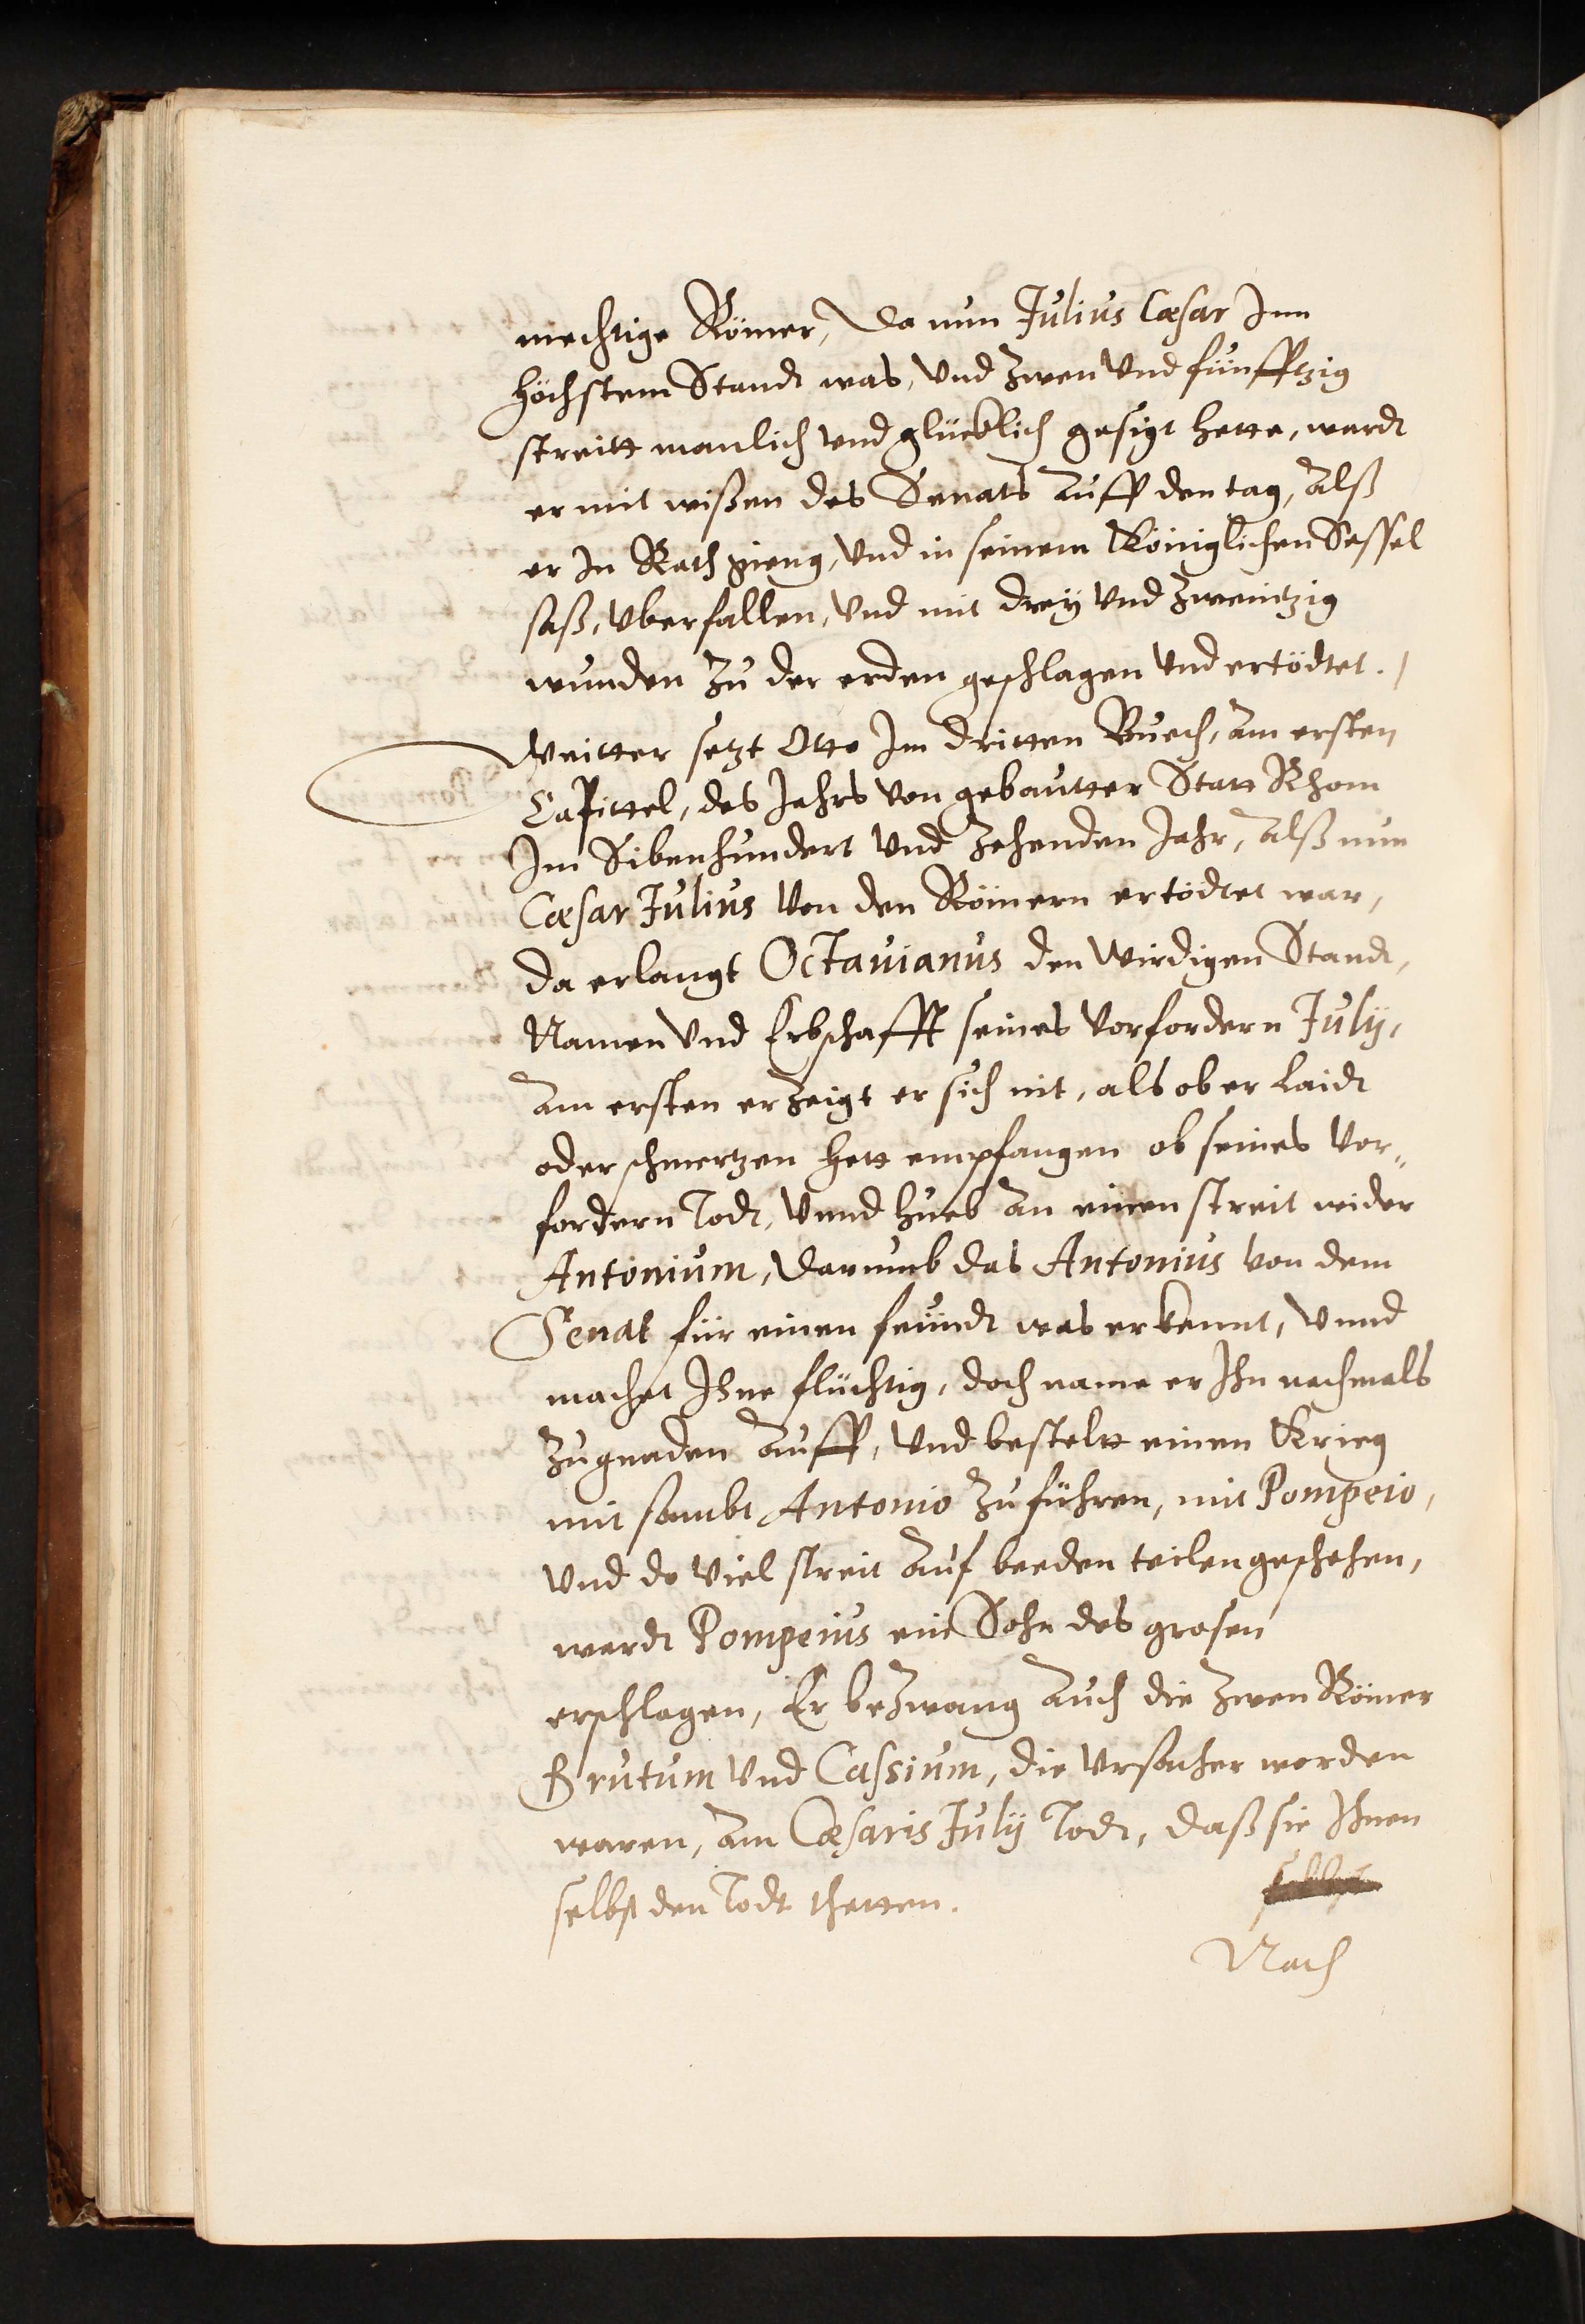 mechtige Römer, Da nun Julius Cæsar Inn
höchstem Standt was, Vnd zwen Vnd fünfftzig
streitt manlich vnd glücklich gesigt hette, wardt
er mit wißen des Senats Auff den tag, Alß
er In Rath gieng, Vnd in seinem Königlichen Sessel
saß, Vberfallen, Vnd mit drey Vnd zweintzig
wunden Zu der erden geschlagen Vnd ertödtet.
Weitter setzt Otto Im dritten Buech, Am ersten
Capittel, des Jahrs Von gebautter Statt Rhom
Im Sibenhundert Vnd Zehenden Jahr, Alß nun
Cæsar Julius Von den Römern ertödtet war,
da erlangt Octauianus den Wirdigen Standt,
Namen Vnd Erbschafft seines Vorfordern July,
Am ersten erzeigt er sich nit, als ob er Laidt
oder schmertzen hett empfangen ob seines Vor„
fordern Todt, Vnnd hueb An einen streit wider
Antonium, Darumb das Antonius Von dem
Senat für einen feündt was erkennt, Vnnd
machet Ihne flüchtig, doch name er Ihn nachmals
Zu gnaden Auff, Vnd bestelt einen Krieg
mit sambt Antonio Zu führen, mit Pompeio,
Vnd do Viel streit Auf beeden teilen geschehen,
wardt Pompeius ein Sohn des grosen
erschlagen, Er bezwang Auch die Zwen Römer
Brutum Vnd Cassium, die Vrsacher worden
waren, Am Cæsaris July Todt, daß sie Ihnen
selbst den Todt thetten.
Nach